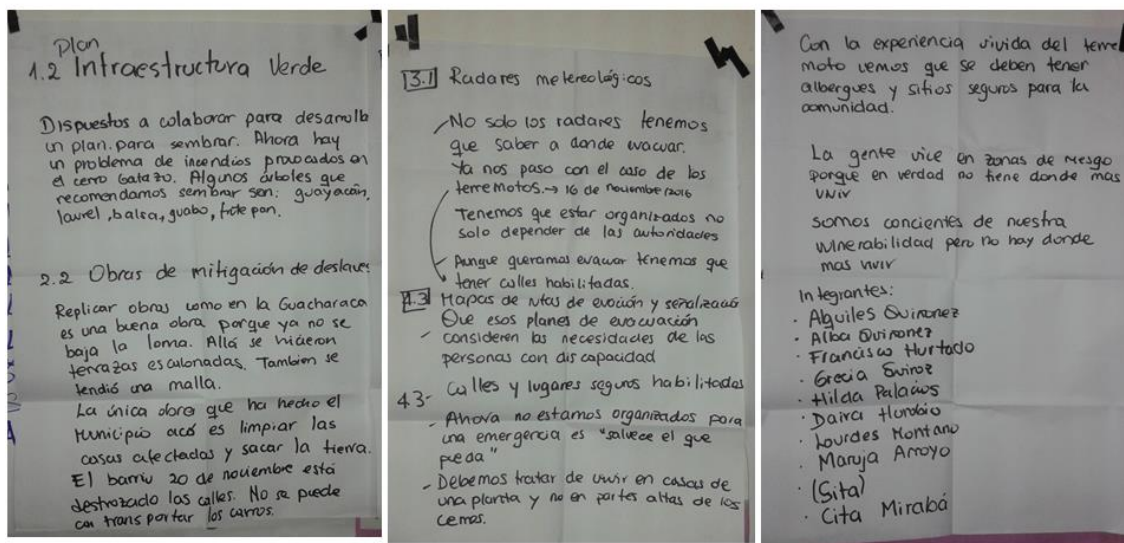 Plan
1.2 Infraestructura Verde
Dispuestos a colaborar para desarrolla
un plan. para sembrar. Ahora hay
un problema de incendios provocados en
el cerro Gatazo. Algunos árboles que
recomendamos sembrar son: guayacán,
laurel, balsa, guabo, frute pan.
2.2 Obras de mitigación de deslaves
Replicar obras como en la Guacharaca
es una buena obra porque ya no se
baja la loma. Allá se hicieron
terrazas escalonadas. Tambien se
tendió una malla.
La única obra que ha hecho el
Municipio acá es limpiar las
casas afectadas y sacar la tierra.
El barrio 20 de noviembre está
destrozado las calles. No se puede
transportar los carros.
3.1 Radares metereológicos
No solo los radares tenemos
que saber a donde evacuar.
Ya nos paso con el caso de los
terremotos. → 16 de noviembre/2016
Tenemos que estar organizados no
solo depender de las autoridades
Aunque queramos evacuar tenemos que
tener calles habilitadas.
4.3 Mapas de rutas de evación y señalización
Que esos planes de evacuación
- consideren las necesidades de las
personas con discapacidad
43- Calles y lugares seguros habilitados
- Ahora no estamos organizados para
una emergencia es "salvece el que
pueda"
- Debemos tratar de vivir en casas de
una planta y no en partes altas de los
cerros.
Con la experiencia vivida del terre
moto vemos que se deben tener
albergues y sitios seguros para la
comunidad.
La gente vice en zonas de riesgo
porque en verdad no tiene donde mas
vivir
somos concientes de nuestra
vulnerabilidad pero no hay donde
mas vivir
Integrantes:
· Alquiles Quironez
· Alba Quironez
· Francisco Hurtado
· Grecia
· Hilda Palacios
· Daira
· Lourdes Montano
· Maruja Arroyo
· (Sita)
· Cita Mirabá